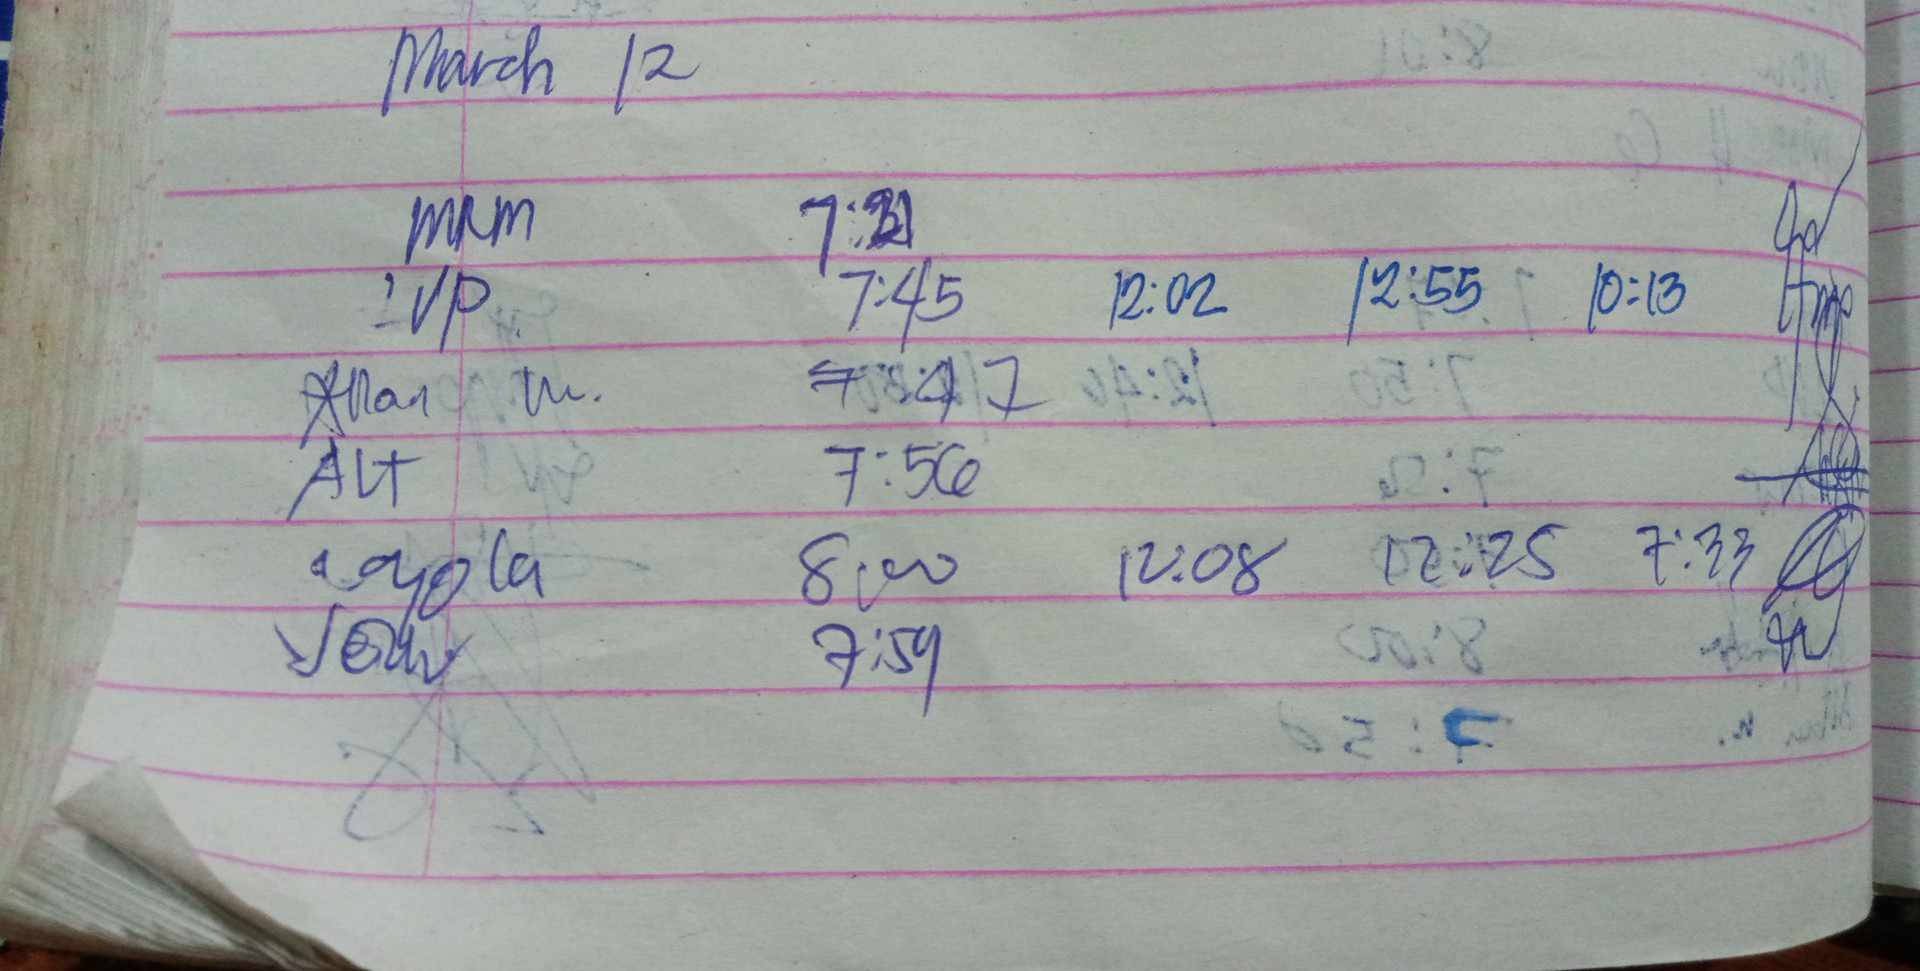 March 12
MRM
IVP 7:45 12:02 12:55 10:13
Allan M. 7:47
ALT 7:56
Loyola 8:00 12:08 12:25 7:33
7:59